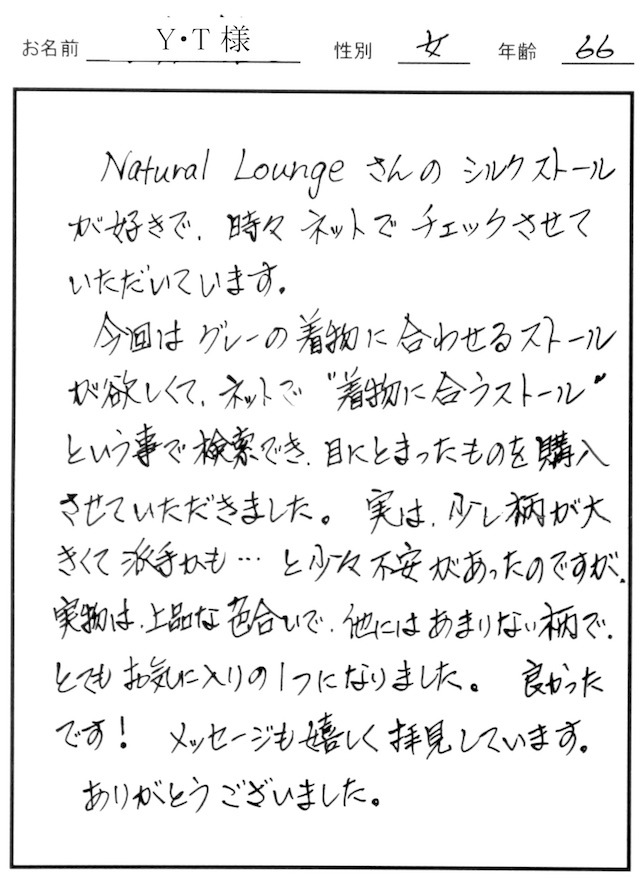 お名前 Y・T様 性別 女 年齢 66
Natural Lounge さんの シルクストール
が好きで、時々 ネットで チェックさせて
いただいています。
今回は グレーの着物に合わせるストール
が欲しくて、ネットで “着物に合うストール”
という事で検索でき、目にとまったものを購入
させていただきました。 実は、少し柄が大
きくて派手かも… と少々不安があったのですが、
実物は、上品な色合いで、他にはあまりない柄で、
とても お気に入りの1つになりました。 良かった
です! メッセージも嬉しく拝見しています。
ありがとうございました。